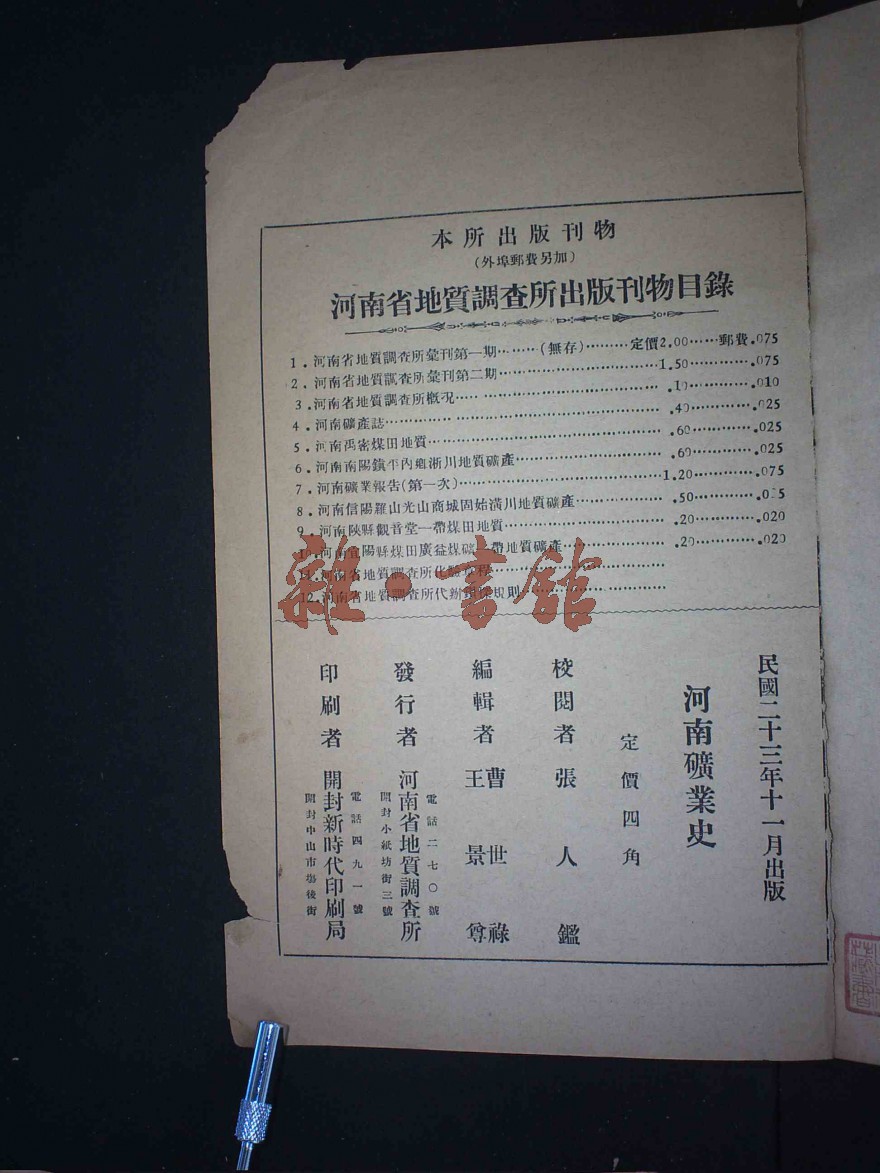 本所出版刊物
(外埠郵費另加)
河南省地質調查所出版刊物目錄
1.河南省地質調查所彙刊第一期………(無存)………定價2.00……郵費.075
2.河南省地質調查所彙刊第二期………1.50……….075
3.河南省地質調查所概況……….10……….010
4.河南礦產誌……….40……….025
5.河南禹密煤田地質……….60……….025
6.河南南陽鎮平內鄉淅川地質礦產……….60……….025
7.河南礦業報告(第一次)………1.20……….075
8.河南信陽羅山光山商城固始潢川地質礦產……….50………
9.河南陝縣觀音堂一帶煤田地質……….20……….020
河南宜陽縣煤田廣益煤礦一帶地質礦產……….20……….020
11.河南省地質調查所化驗章程………
12.河南省地質調查所代辦 規則………
民國二十三年十一月出版
河南礦業史
定價四角
校閱者 張人鑑
編輯者 曹世祿
王景尊
發行者 河南省地質調查所
電話二七〇號
開封小紙坊街三號
印刷者 開封新時代印刷局
電話四九一號
開封中山市場後街
雜·書館